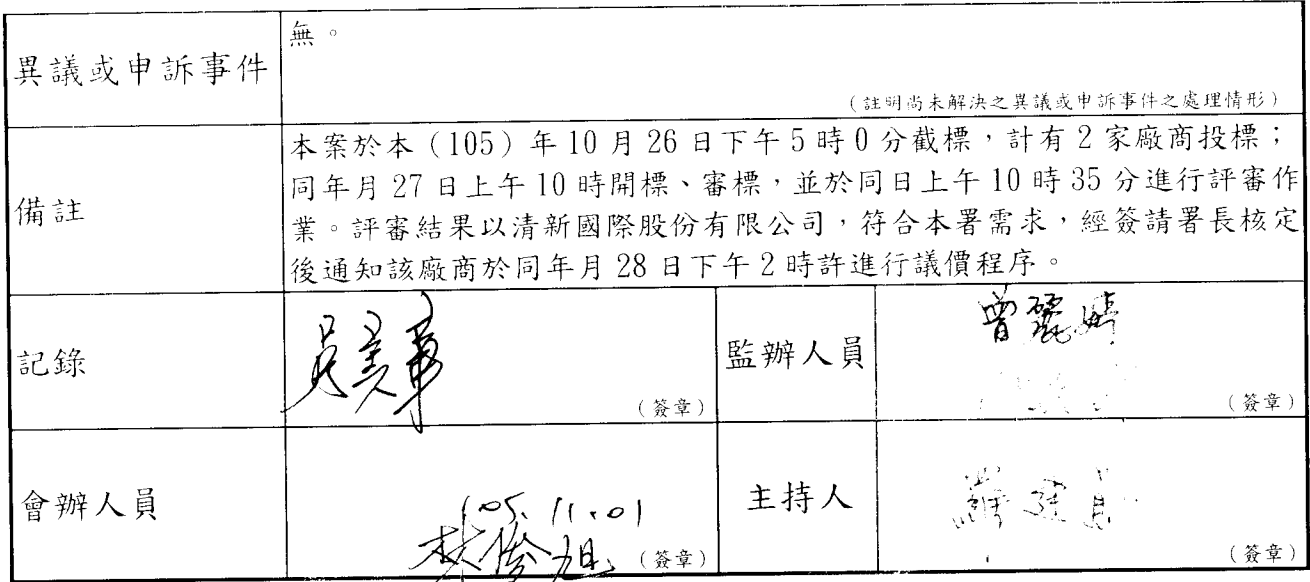 異議或申訴事件
無。
(註明尚未解決之異議或申訴事件之處理情形)
備註
本案於本(105)年10月26日下午5時0分截標,計有2家廠商投標;
同年月27日上午10時開標、審標,並於同日上午10時35分進行評審作
業。評審結果以清新國際股份有限公司,符合本署需求,經簽請署長核定
後通知該廠商於同年月28日下午2時許進行議價程序。
記錄
(簽章)
監辦人員
曾麗
(簽章)
會辦人員
105.11.01
林俊旭
(簽章)
主持人
(簽章)